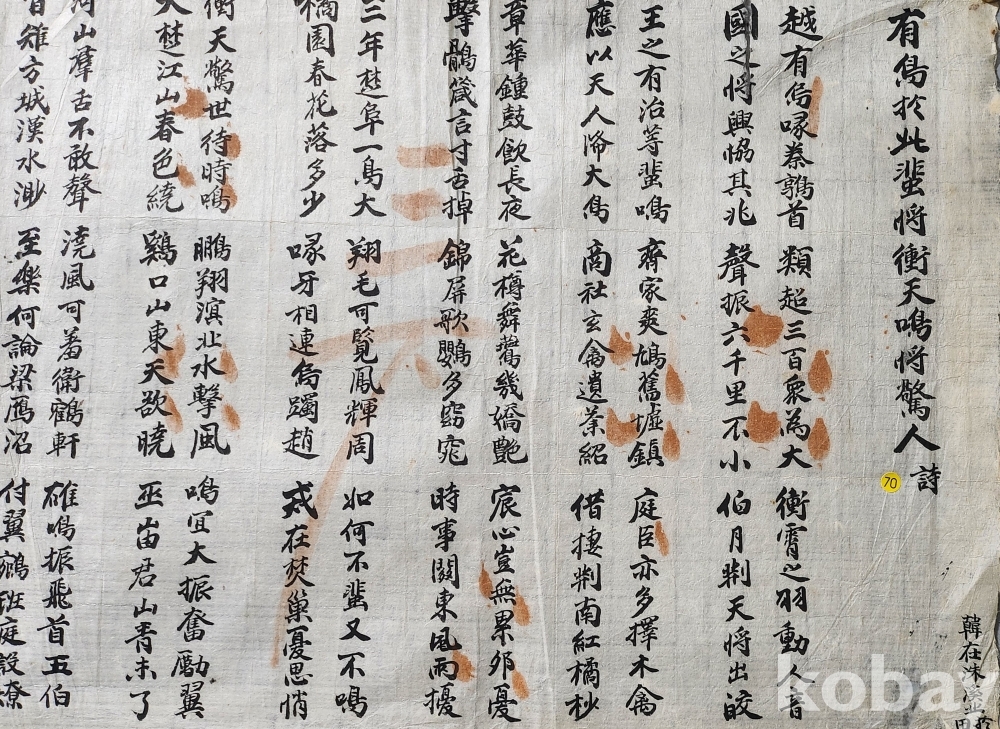 有鳥於此蜚將衝天鳴將驚人 詩
70
越有鳥喙秦鶉首 類超三百衆為大 衝霄之羽動人音
國之將興協其兆 聲振六千里不小 伯月荊天將出皎
王之有治等蜚鳴 齊家爽鳩舊墟鎮 庭臣亦多擇木禽
應以天人降大鳥 商社玄禽遺業紹 借捿荊南紅橘杪
章華鍾鼓飮長夜 花樽舞鶯幾嬌艶 宸心豈無累卵憂
擊鶻箴言寸舌掉 錦屛歌鸚多窈窕 時事關東風雨擾
三年楚阜一鳥大 翔毛可覽鳳輝周 如何不蜚又不鳴
橘園春花落多少 喙牙相連鳥躅趙 戒在焚巢憂思悄
衝天驚世待時鳴 鵬翔溟北水擊風 鳴宜大振奮勵翼
大楚江山春色繞 鷄口山東天欲曉 巫峀君山靑未了
山羣舌不敢聲 澆風可羞衛鶴軒 雄鳴振飛首五伯
雉方城漢水渺 至樂何論梁鴈沼 付翼鵷班庭設燎
韓在洙
kobay